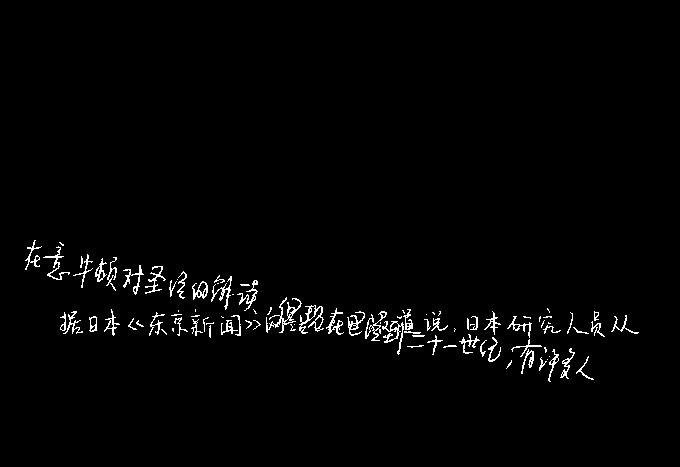 在意牛顿对圣经的解读
据日本《东京新闻》的在道说,日本研究人员从
二十一世纪,有许多人